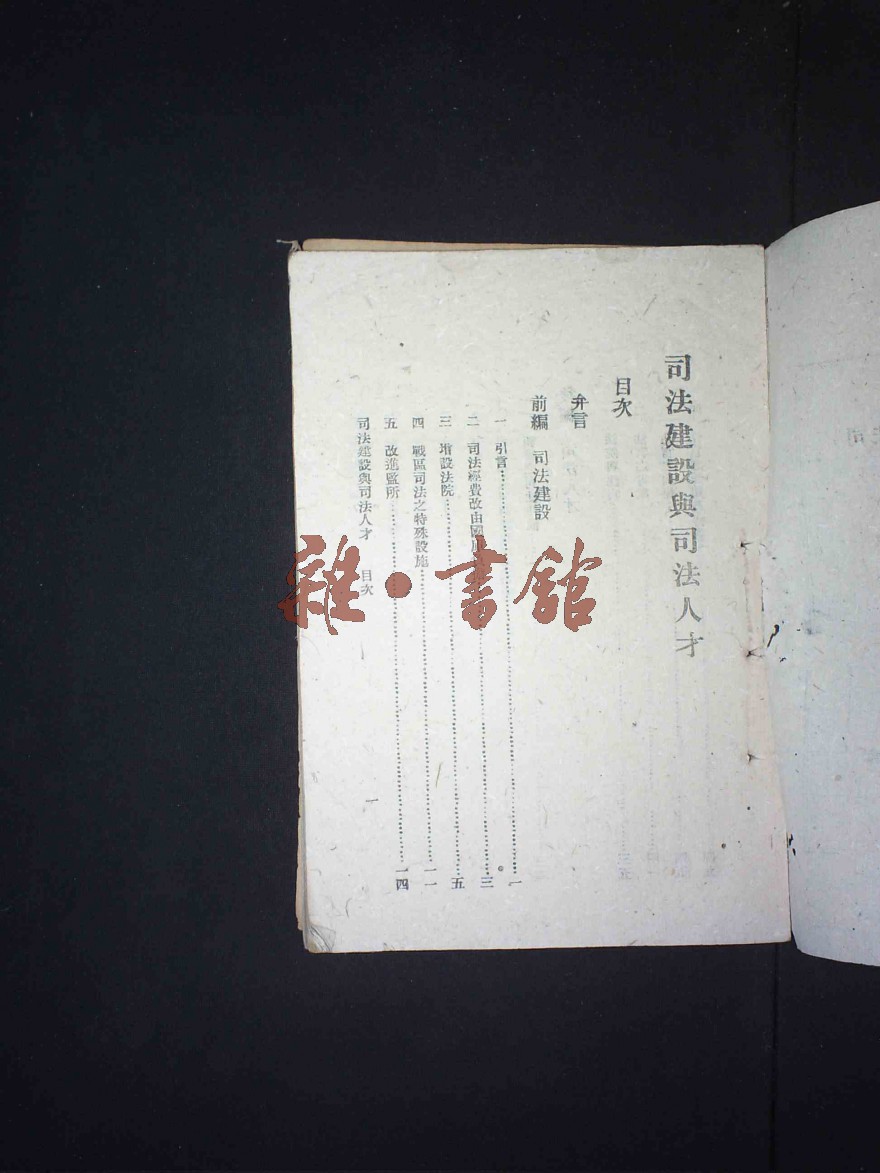 司法建設與司法人才
目次
弁言
前編 司法建設
一 引言……一
二 司法經費改由國庫……三
三 增設法院……五
四 戰區司法之特殊設施……一一
五 改進監所……一四
司法建設與司法人才 目次 一
雜·書館